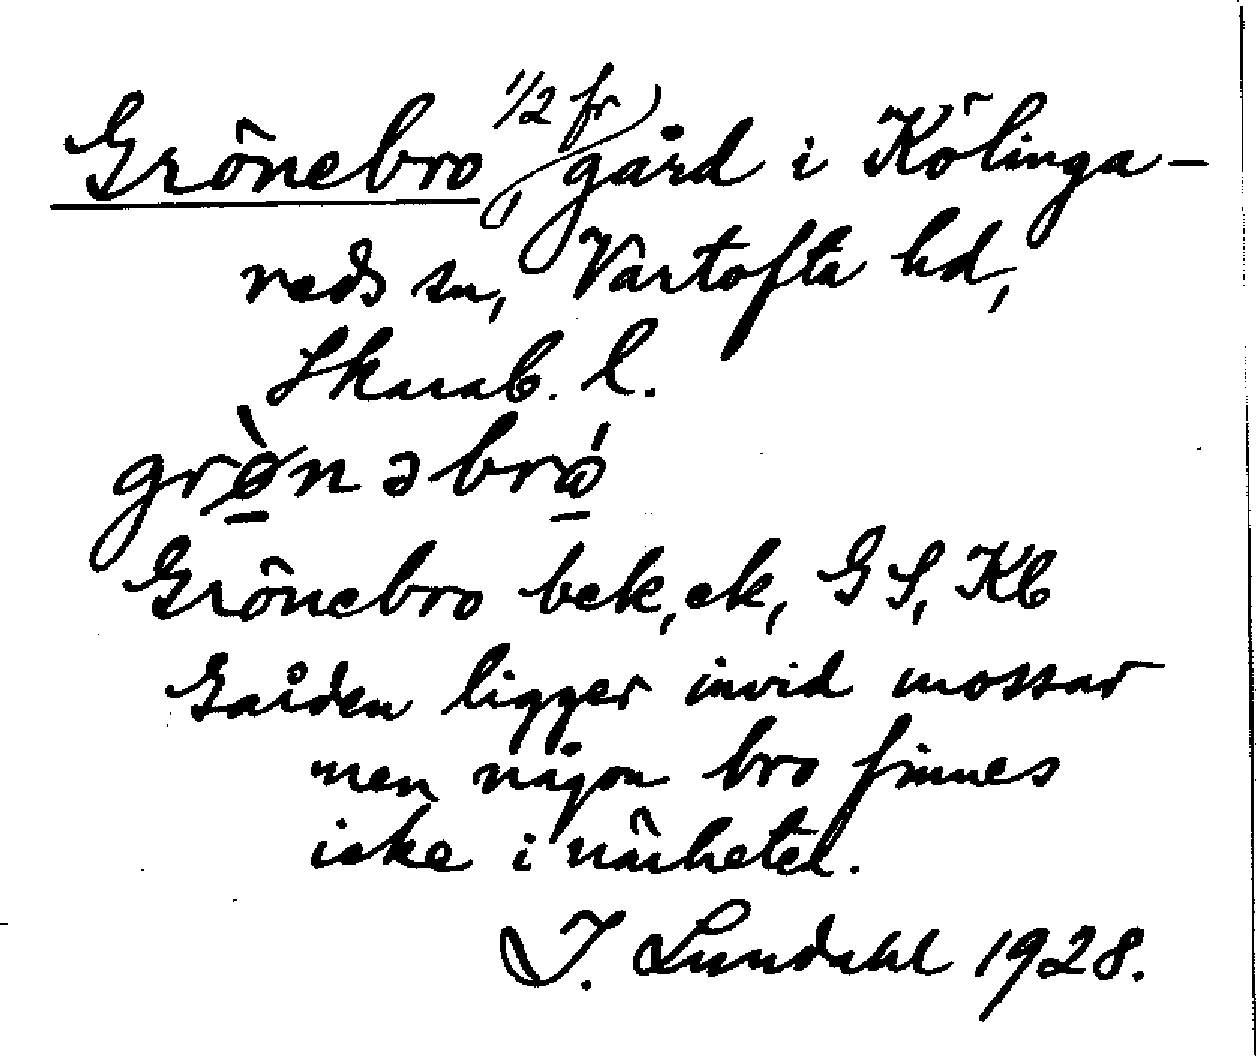 Grönebro, 1/2 fr gård i Kölinga-
reds sn, Vartofta hd,
Skarab. l.
grø̀nəbró
Grönebro bek, ek, GS, Kb
Gården ligger invid mossar
men någon bro finnes
icke i närheten.
I. Lundahl 1928.